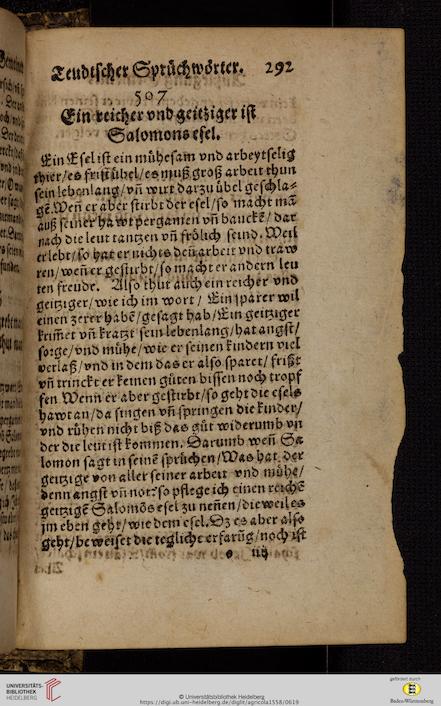 Teudtscher Sprüchwörter. 292
507
Ein reicher vnd geitziger ist
Salomons esel.
Ein Esel ist ein mühesam vnd arbeytselig
thier/es frist übel/es muß groß arbeit thun
sein lebenlang/vn̄ wirt darzu übel geschla-
gē. Wen̄ er aber stirbt der esel/so macht mā
auß seiner hawt pergamen vn̄ bauckē/ dar
nach die leut tantzen vn̄ frölich seind. Weil
er lebt/so hat er nichts deñ arbeit vnd traw
ren/wen̄ er gestirbt/so macht er andern leu
ten freude. Also thut auch ein reicher vnd
geitziger/wie ich im wort/ Ein sparer wil
einen zerer habē/gesagt hab/Ein geitziger
krim̄et vn̄ kratzt sein lebenlang/hat angst/
sorge/vnd mühe/wie er seinen kindern viel
verlaß/vnd in dem das er also sparet/ frißt
vn̄ trinckt er keinen gůten bissen noch tropf
fen Wenn er aber gestirbt/so geht die esels
hawt an/da singen vn̄ springen die kinder/
vnd rühen nicht biß das gůt widerumb vn
der die leut ist kommen. Darumb wen̄ Sa
lomon sagt in seinē sprüchen/Was hat der
geitzige von aller seiner arbeit vnd mühe/
denn angst vn̄ not? so pflege ich einen reichē
geitzigē Salomōs esel zu nen̄en/die weil es
jm eben geht/wie dem esel. Dz es aber also
geht/beweiset die teglicht erfarūg/noch ist
UNIVERSITÄTS-
BIBLIOTHEK
HEIDELBERG
© Universitätsbibliothek Heidelberg
https://digi.ub.uni-heidelberg.de/diglit/agricola1558/0619
gefördert durch
Baden-Württemberg